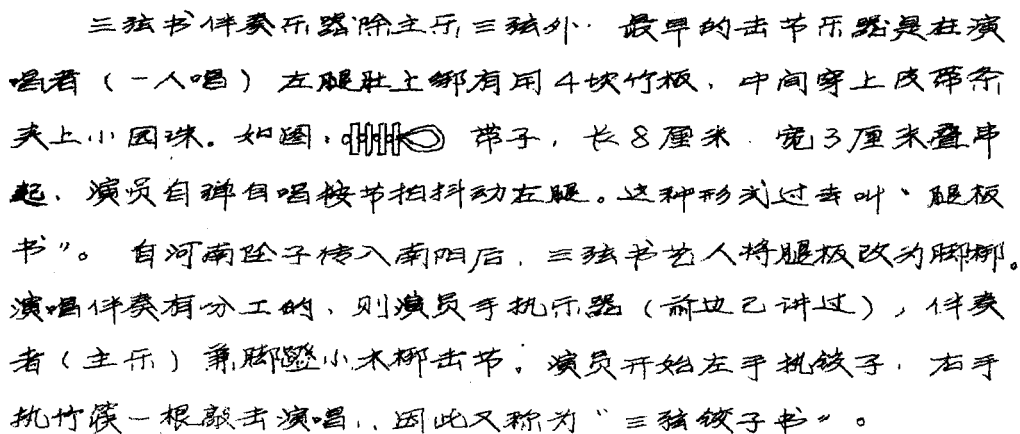 三弦书伴奏乐器除主乐三弦外．最早的击节乐器是在演
唱者（一人唱）左腿肚上绑有用4块竹板．中间穿上皮带条
夹上小园珠。如图． 带子，长8厘米．宽3厘米叠串
起．演员自弹自唱按节拍抖动左腿。这种形式过去叫“腿板
书”。自河南坠子传入南阳后．三弦书艺人将腿板改为脚梆。
演唱伴奏有分工的．则演员手执乐器（前边已讲过），伴奏
者（主乐）兼脚蹬小木梆击节。演员开始左手执铰子．右手
执竹筷一根敲击演唱．因此又称为“三弦铰子书”。